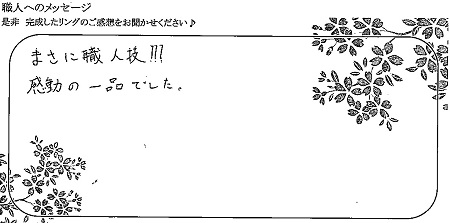 職人へのメッセージ
是非 完成したリングのご感想をお聞かせください♪
まさに職人技!!!
感動の一品でした。